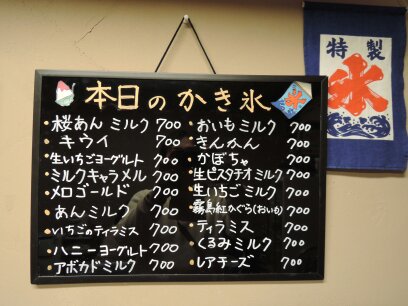 本日のかき氷
桜あんミルク 700
キウイ 700
生いちごヨーグルト 700
ミルクキャラメル 700
メロゴールド 700
あんミルク 700
いちごのティラミス 700
ハニーヨーグルト 700
アボカドミルク 700
おいもミルク 700
きんかん 700
かぼちゃ 700
生ピスタチオミルク 700
生いちごミルク 700
霧島紅かぐら(おいも) 700
ティラミス 700
くるみミルク 700
レアチーズ 700
特製
氷